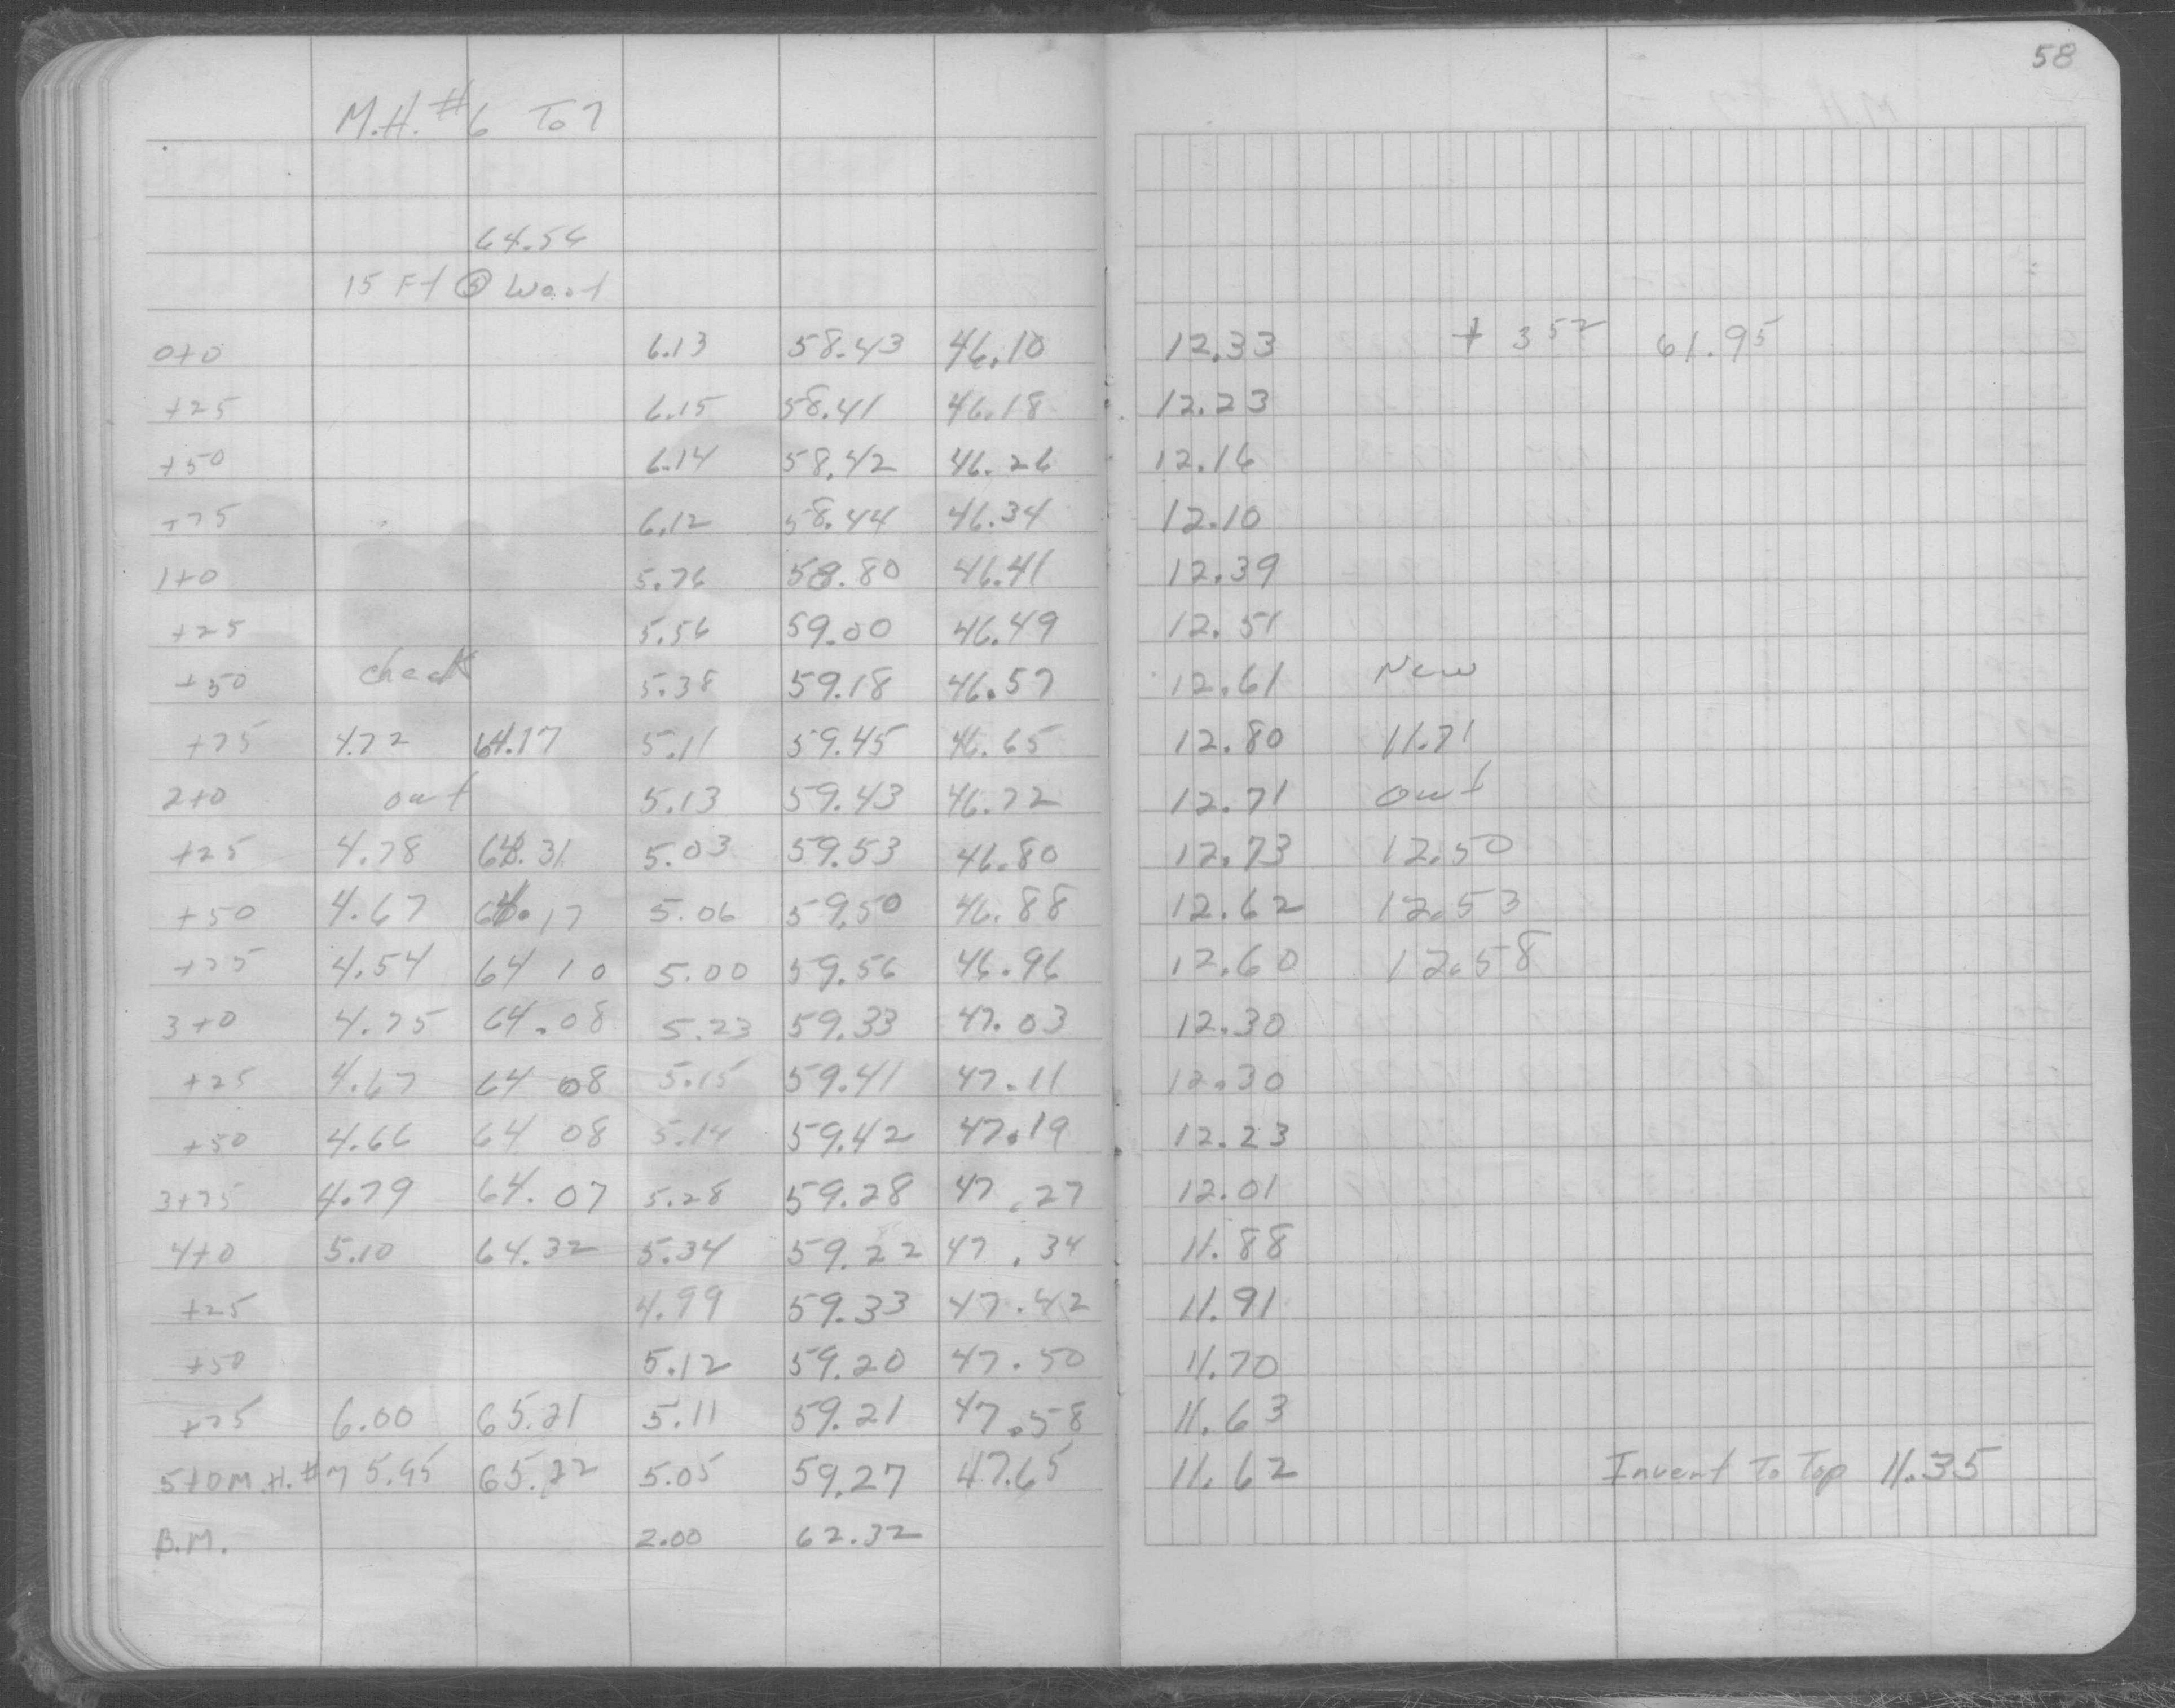 58
M.H. #6 To 7
64.56
15 Ft @ West
0+0 6.13 58.43 46.10 12.33 + 3 52 61.95
+25 6.15 58.41 46.18 12.23
+50 6.14 58.42 46.26 12.16
+75 6.12 58.44 46.34 12.10
1+0 5.76 58.80 46.41 12.39
+25 5.56 59.00 46.49 12.51
+50 check 5.38 59.18 46.57 12.61 New
+75 4.72 64.17 5.11 59.45 46.65 12.80 11.71
2+0 out 5.13 59.43 46.72 12.71 out
+25 4.78 64.31 5.03 59.53 46.80 12.73 12.50
+50 4.67 64.17 5.06 59.50 46.88 12.62 12.53
+75 4.54 64 10 5.00 59.56 46.96 12.60 12.58
3+0 4.75 64.08 5.23 59.33 47.03 12.30
+25 4.67 64 08 5.15 59.41 47.11 12.30
+50 4.66 64 08 5.14 59.42 47.19 12.23
3+75 4.79 64.07 5.28 59.28 47.27 12.01
4+0 5.10 64.32 5.34 59.22 47.34 11.88
+25 4.99 59.33 47.42 11.91
+50 5.12 59.20 47.50 11.70
+75 6.00 65.21 5.11 59.21 47.58 11.63
5+0 M.H. #7 5.95 65.22 5.05 59.27 47.65 11.62 Invert To Top 11.35
B.M. 2.00 62.32